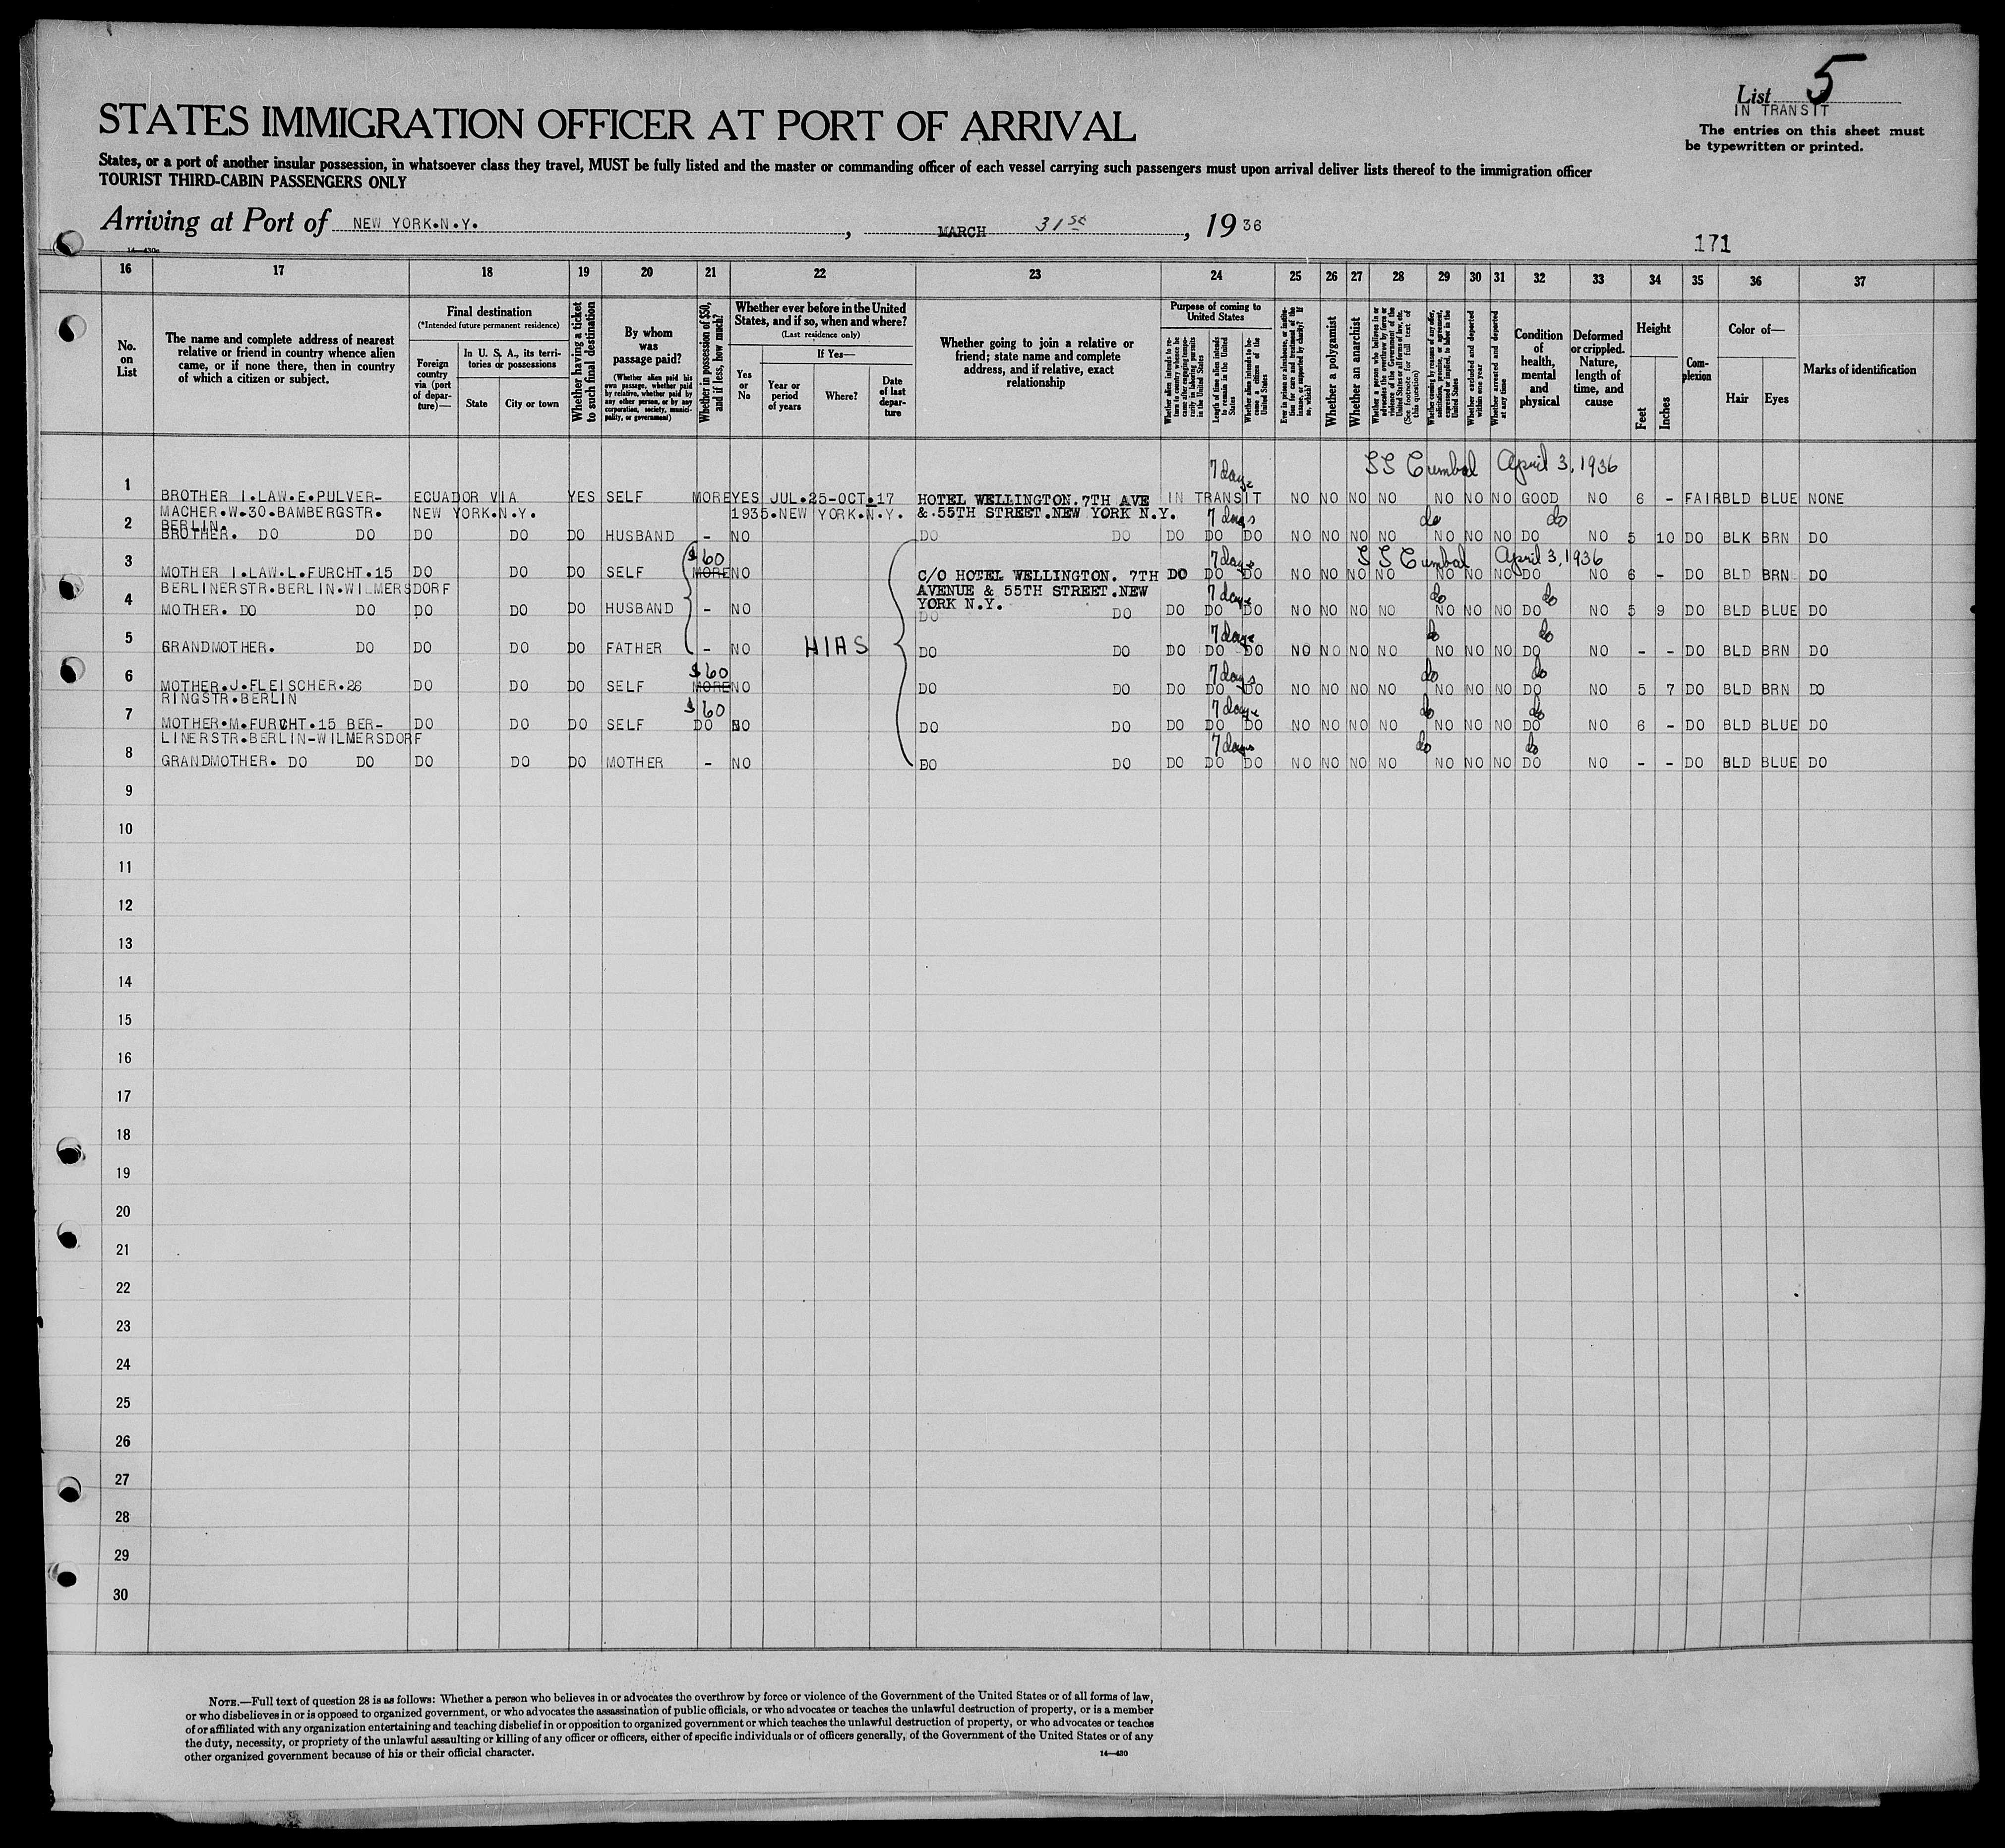 List 5
IN TRANSIT
The entries on this sheet must
be typewritten or printed.
STATES IMMIGRATION OFFICER AT PORT OF ARRIVAL
States, or a port of another insular possession, in whatsoever class they travel, MUST be fully listed and the master or commanding officer of each vessel carrying such passengers must upon arrival deliver lists thereof to the immigration officer
TOURIST THIRD-CABIN PASSENGERS ONLY
Arriving at Port of NEW YORK.N.Y. , MARCH 31st , 19 36
14—430c
171
16 17 18 19 20 21 22 23 24 25 26 27 28 29 30 31 32 33 34 35 36 37
No. on List
The name and complete address of nearest relative or friend in country whence alien came, or if none there, then in country of which a citizen or subject.
Final destination
(*Intended future permanent residence)
Foreign country via (port of departure)—
In U. S. A., its territories or possessions
State
City or town
Whether having a ticket to such final destination
By whom was passage paid?
(Whether alien paid his own passage, whether paid by relative, whether paid by any other person, or by any corporation, society, municipality, or government)
Whether in possession of $50, and if less, how much?
Whether ever before in the United States, and if so, when and where?
(Last residence only)
Yes or No
If Yes—
Year or period of years
Where?
Date of last departure
Whether going to join a relative or friend; state name and complete address, and if relative, exact relationship
Purpose of coming to United States
Whether alien intends to return to country whence he came after engaging temporarily in laboring pursuits in the United States
Length of time alien intends to remain in the United States
Whether alien intends to become a citizen of the United States
Ever in prison or almshouse, or institution for care and treatment of the insane, or supported by charity? If so, which?
Whether a polygamist
Whether an anarchist
Whether a person who believes in or advocates the overthrow by force or violence of the Government of the United States or all forms of law, etc. (See footnote for full text of this question)
Whether coming by reason of any offer, solicitation, promise, or agreement, expressed or implied, to labor in the United States
Whether excluded and deported within one year
Whether arrested and deported at any time
Condition of health, mental and physical
Deformed or crippled. Nature, length of time, and cause
Height
Feet
Inches
Complexion
Color of—
Hair
Eyes
Marks of identification
7 days SS Cumbal April 3, 1936
1 BROTHER I.LAW.E.PULVER- ECUADOR VIA YES SELF MORE YES JUL.25-OCT.17 HOTEL WELLINGTON.7TH AVE IN TRANSIT NO NO NO NO NO NO NO GOOD NO 6 - FAIR BLD BLUE NONE
MACHER.W.30.BAMBERGSTR. NEW YORK.N.Y. 1935.NEW YORK.N.Y. & 55TH STREET.NEW YORK N.Y.
BERLIN. 7 days do do
2 BROTHER. DO DO DO DO DO HUSBAND - NO DO DO DO DO DO NO NO NO NO NO NO NO DO NO 5 10 DO BLK BRN DO
$ 60 7 days SS Cumbal April 3, 1936
3 MOTHER I.LAW.L.FURCHT.15 DO DO DO SELF MORE NO C/O HOTEL WELLINGTON. 7TH DO DO DO NO NO NO NO NO NO NO DO NO 6 - DO BLD BRN DO
BERLINERSTR.BERLIN.WILMERSDORF AVENUE & 55TH STREET.NEW 7 days do do
YORK N.Y.
4 MOTHER. DO DO DO DO DO HUSBAND - NO DO DO DO DO DO NO NO NO NO NO NO NO DO NO 5 9 DO BLD BLUE DO
7 days do do
5 GRANDMOTHER. DO DO DO DO FATHER - NO HIAS DO DO DO DO DO NO NO NO NO NO NO NO DO NO - - DO BLD BRN DO
$ 60 7 days do do
6 MOTHER.J.FLEISCHER.26 DO DO DO SELF MORE NO DO DO DO DO DO NO NO NO NO NO NO NO DO NO 5 7 DO BLD BRN DO
RINGSTR.BERLIN
$ 60 7 days do do
7 MOTHER.M.FURCHT.15 BER- DO DO DO SELF DO NO DO DO DO DO DO NO NO NO NO NO NO NO DO NO 6 - DO BLD BLUE DO
LINERSTR.BERLIN-WILMERSDORF
7 days do do
8 GRANDMOTHER. DO DO DO DO DO MOTHER - NO DO DO DO DO DO NO NO NO NO NO NO NO DO NO - - DO BLD BLUE DO
9
10
11
12
13
14
15
16
17
18
19
20
21
22
23
24
25
26
27
28
29
30
NOTE.—Full text of question 28 is as follows: Whether a person who believes in or advocates the overthrow by force or violence of the Government of the United States or of all forms of law,
or who disbelieves in or is opposed to organized government, or who advocates the assassination of public officials, or who advocates or teaches the unlawful destruction of property, or is a member
of or affiliated with any organization entertaining and teaching disbelief in or opposition to organized government or which teaches the unlawful destruction of property, or who advocates or teaches
the duty, necessity, or propriety of the unlawful assaulting or killing of any officer or officers, either of specific individuals or of officers generally, of the Government of the United States or of any
other organized government because of his or their official character.
14—430